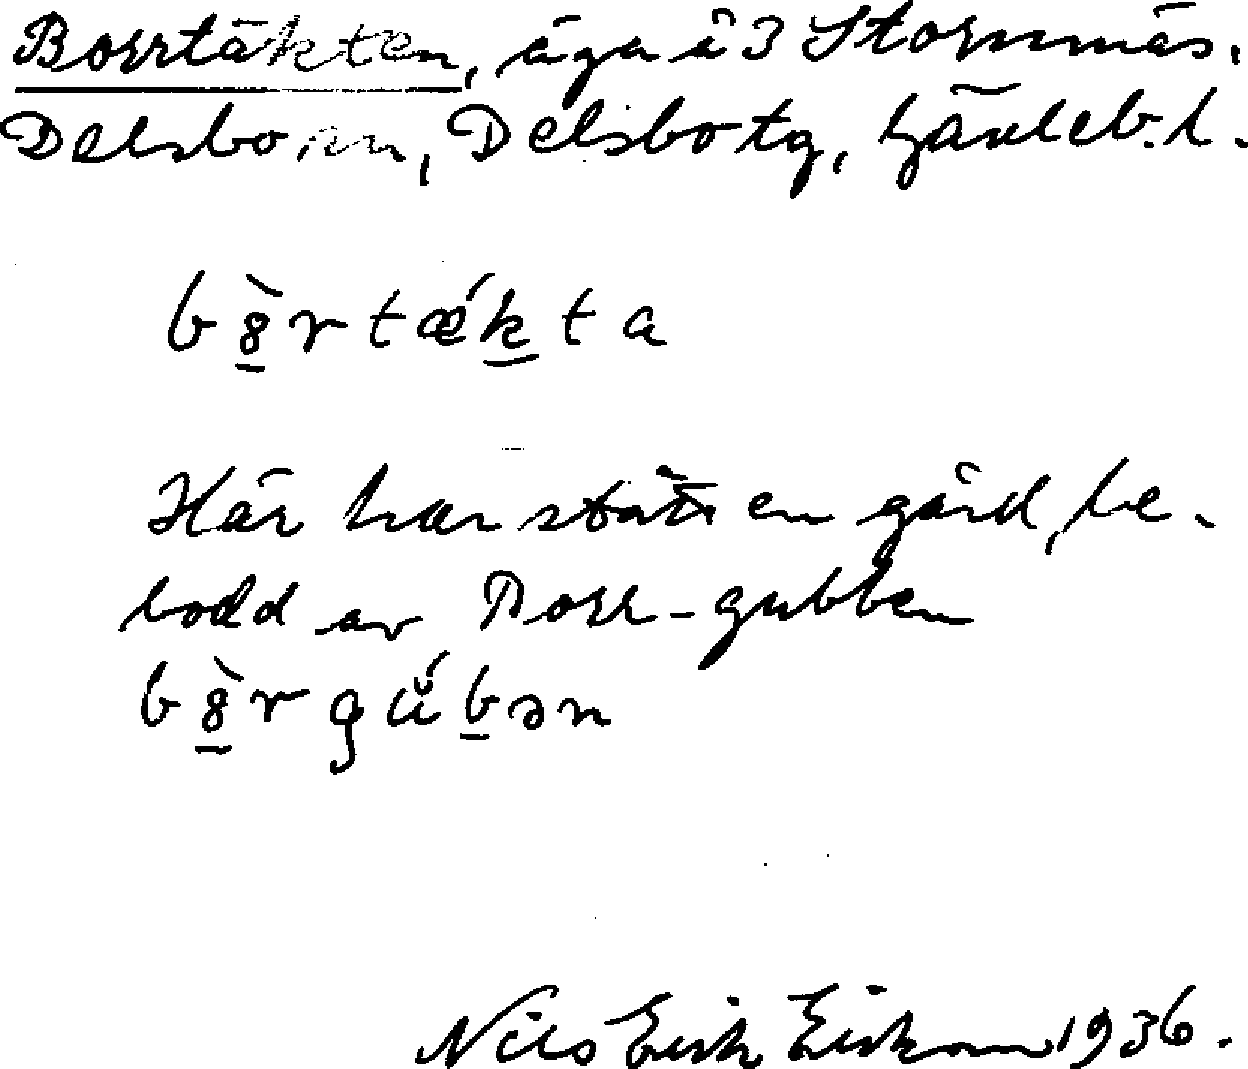 Borrtäkten, äga i 3 Stornäs,
Delsbo sn, Delsbo tg, Gävleb. l.
bə̀rtǽkta
Här har stått en gård, be-
bodd av Borr-gubben
gúbən
Nils Erik Erikson 1936.